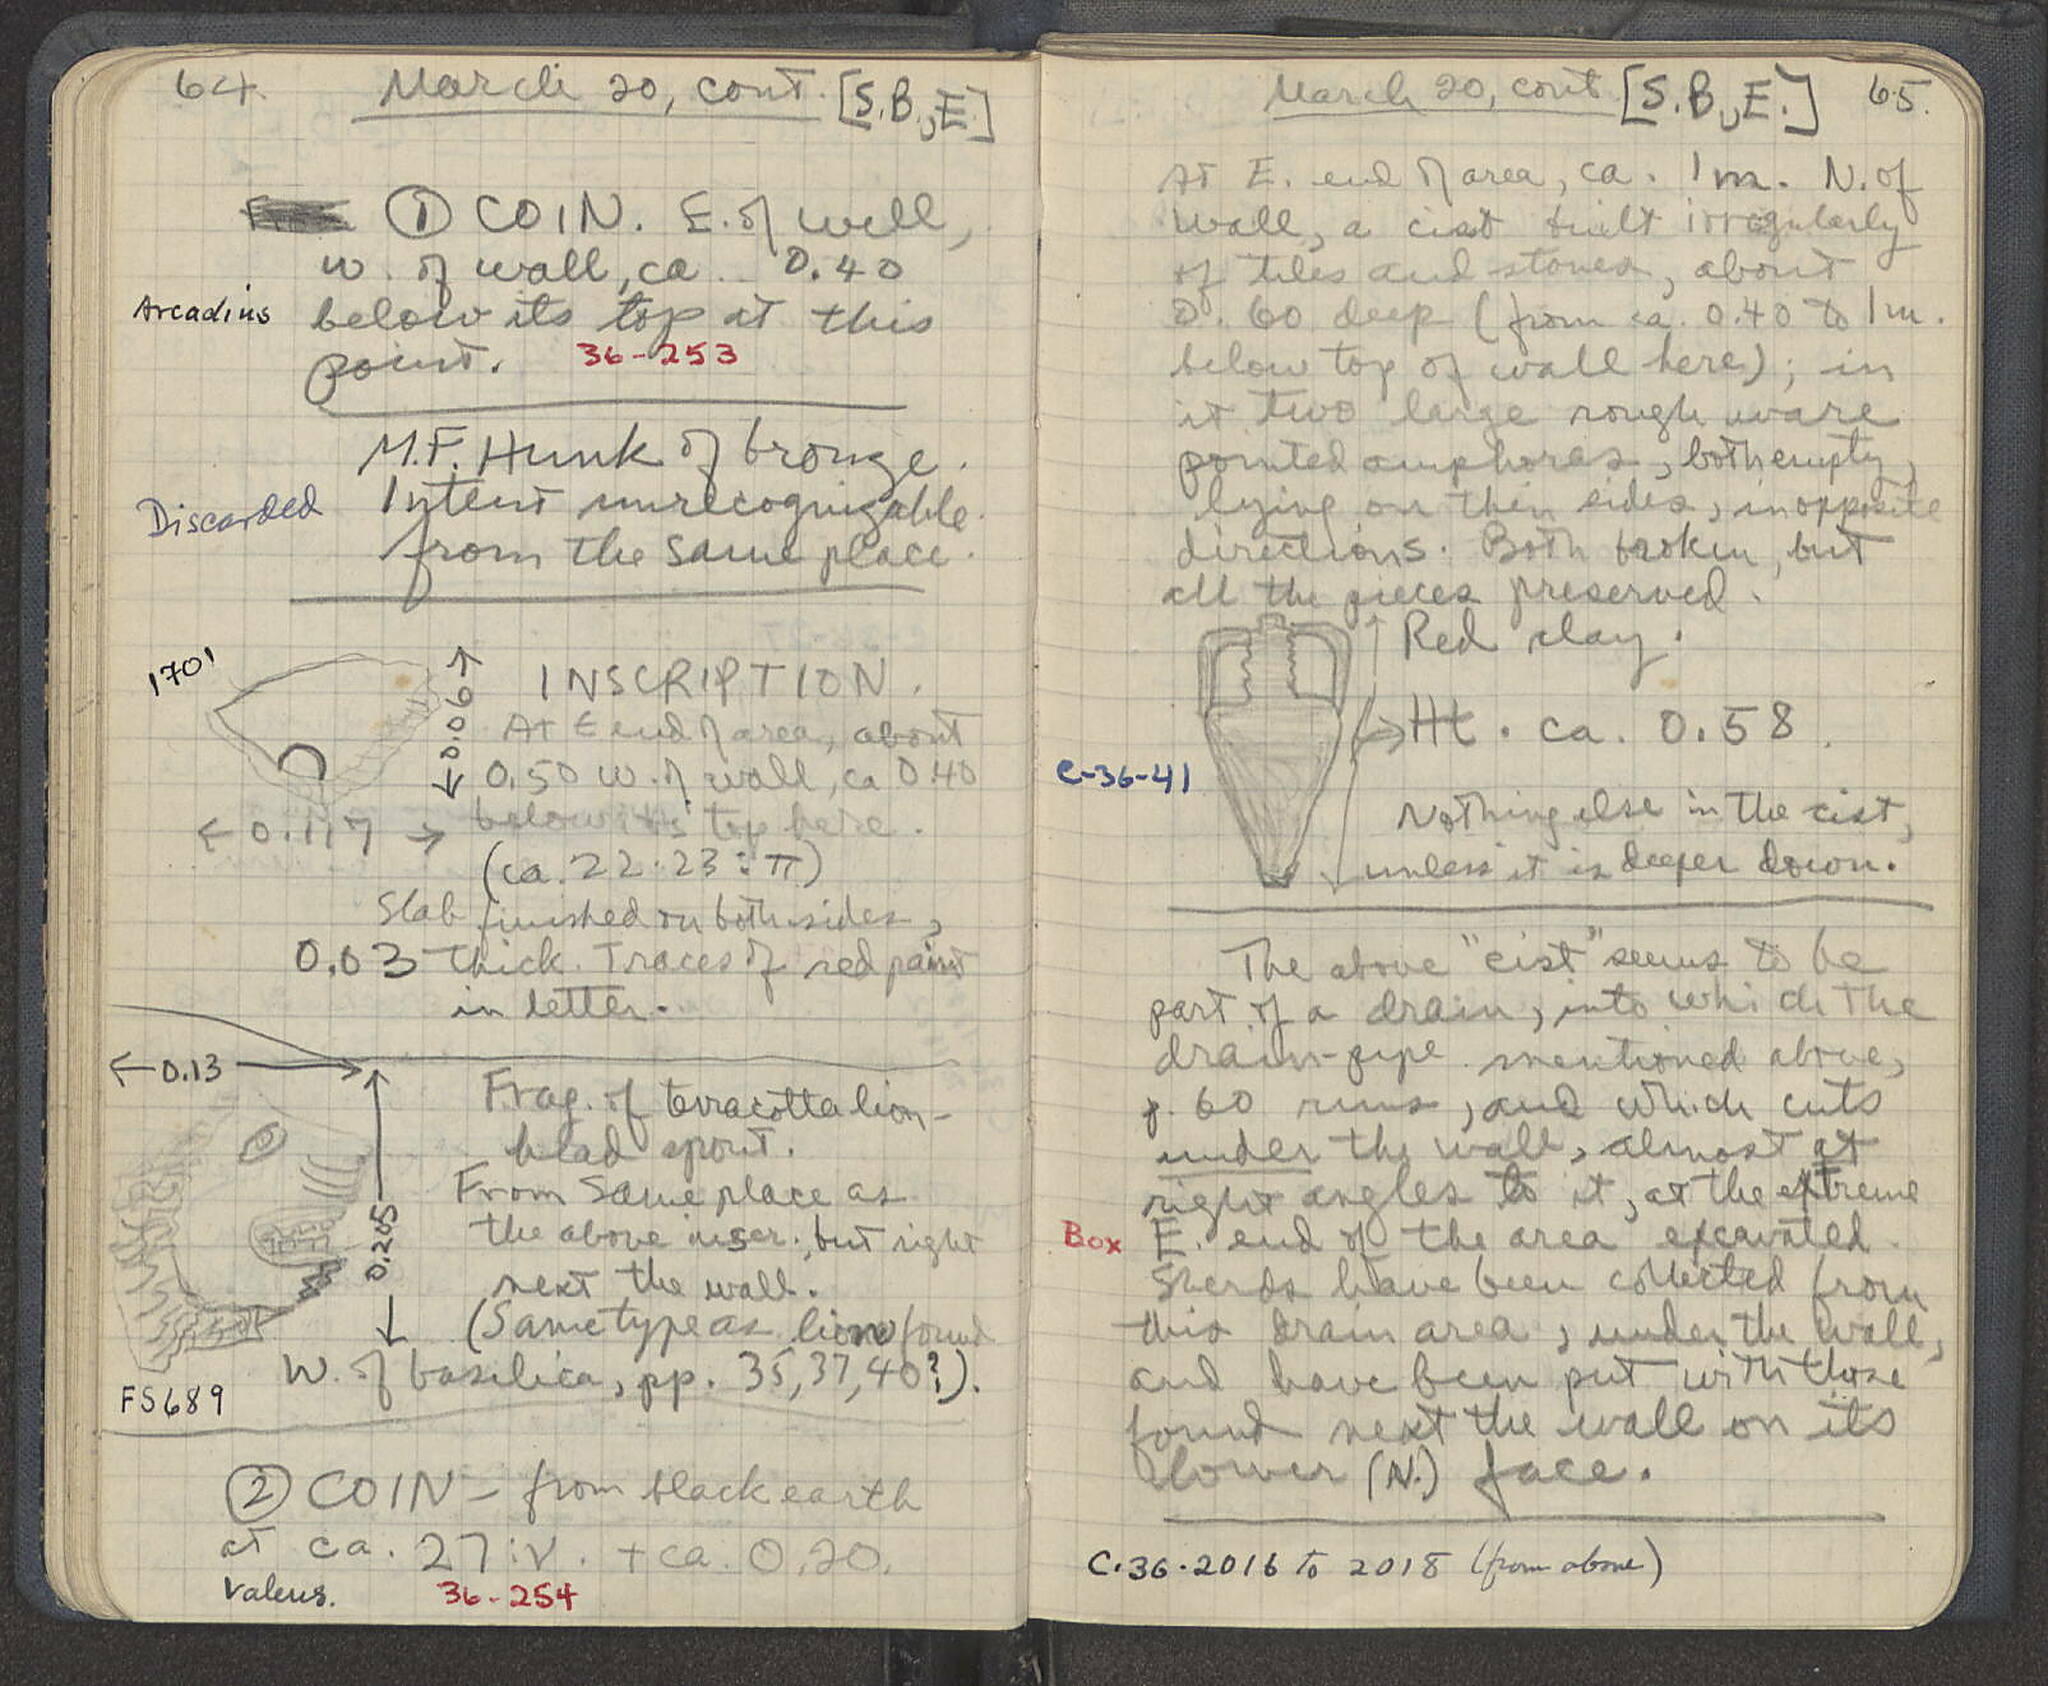 64. March 20, cont. [S.B.,E.]
① COIN. E. of well,
w. of wall, ca. 0.40
Arcadius below its top at this
point. 36-253
M.F. Hunk of bronze.
Discarded Intent unrecognizable.
from the same place.
1701
INSCRIPTION.
0.06
At E end of area, about
0.50 w. of wall, ca 0.40
below its top here.
0.117
(ca. 22-23 : π)
Slab finished on both sides,
0.03 thick. Traces of red paint
in letter.
0.13
Frag. of terracotta lion-
head spout.
From same place as
0.205
the above inscr., but right
next the wall.
(Same type as lion found
W. of basilica, pp. 35, 37, 40?).
FS689
② COIN – from black earth
at ca. 27 : V. + ca. 0.20.
Valens. 36-254
March 20, cont [S.B.,E.] 65.
At E. end of area, ca. 1 m. N. of
wall, a cist built irregularly
of tiles and stones, about
0.60 deep (from ca. 0.40 to 1 m.
below top of wall here); in
it two large rough ware
pointed amphoras, both empty,
lying on their sides, in opposite
directions. Both broken, but
all the pieces preserved.
Red clay.
Ht. ca. 0.58.
C-36-41
Nothing else in the cist,
unless it is deeper down.
The above "cist" seems to be
part of a drain, into which the
drain-pipe mentioned above,
p. 60 runs, and which cuts
under the wall, almost at
right angles to it, at the extreme
Box E. end of the area excavated.
Sherds have been collected from
this drain area, under the wall,
and have been put with those
found next the wall on its
lower (N.) face.
C.36.2016 to 2018 (from above)